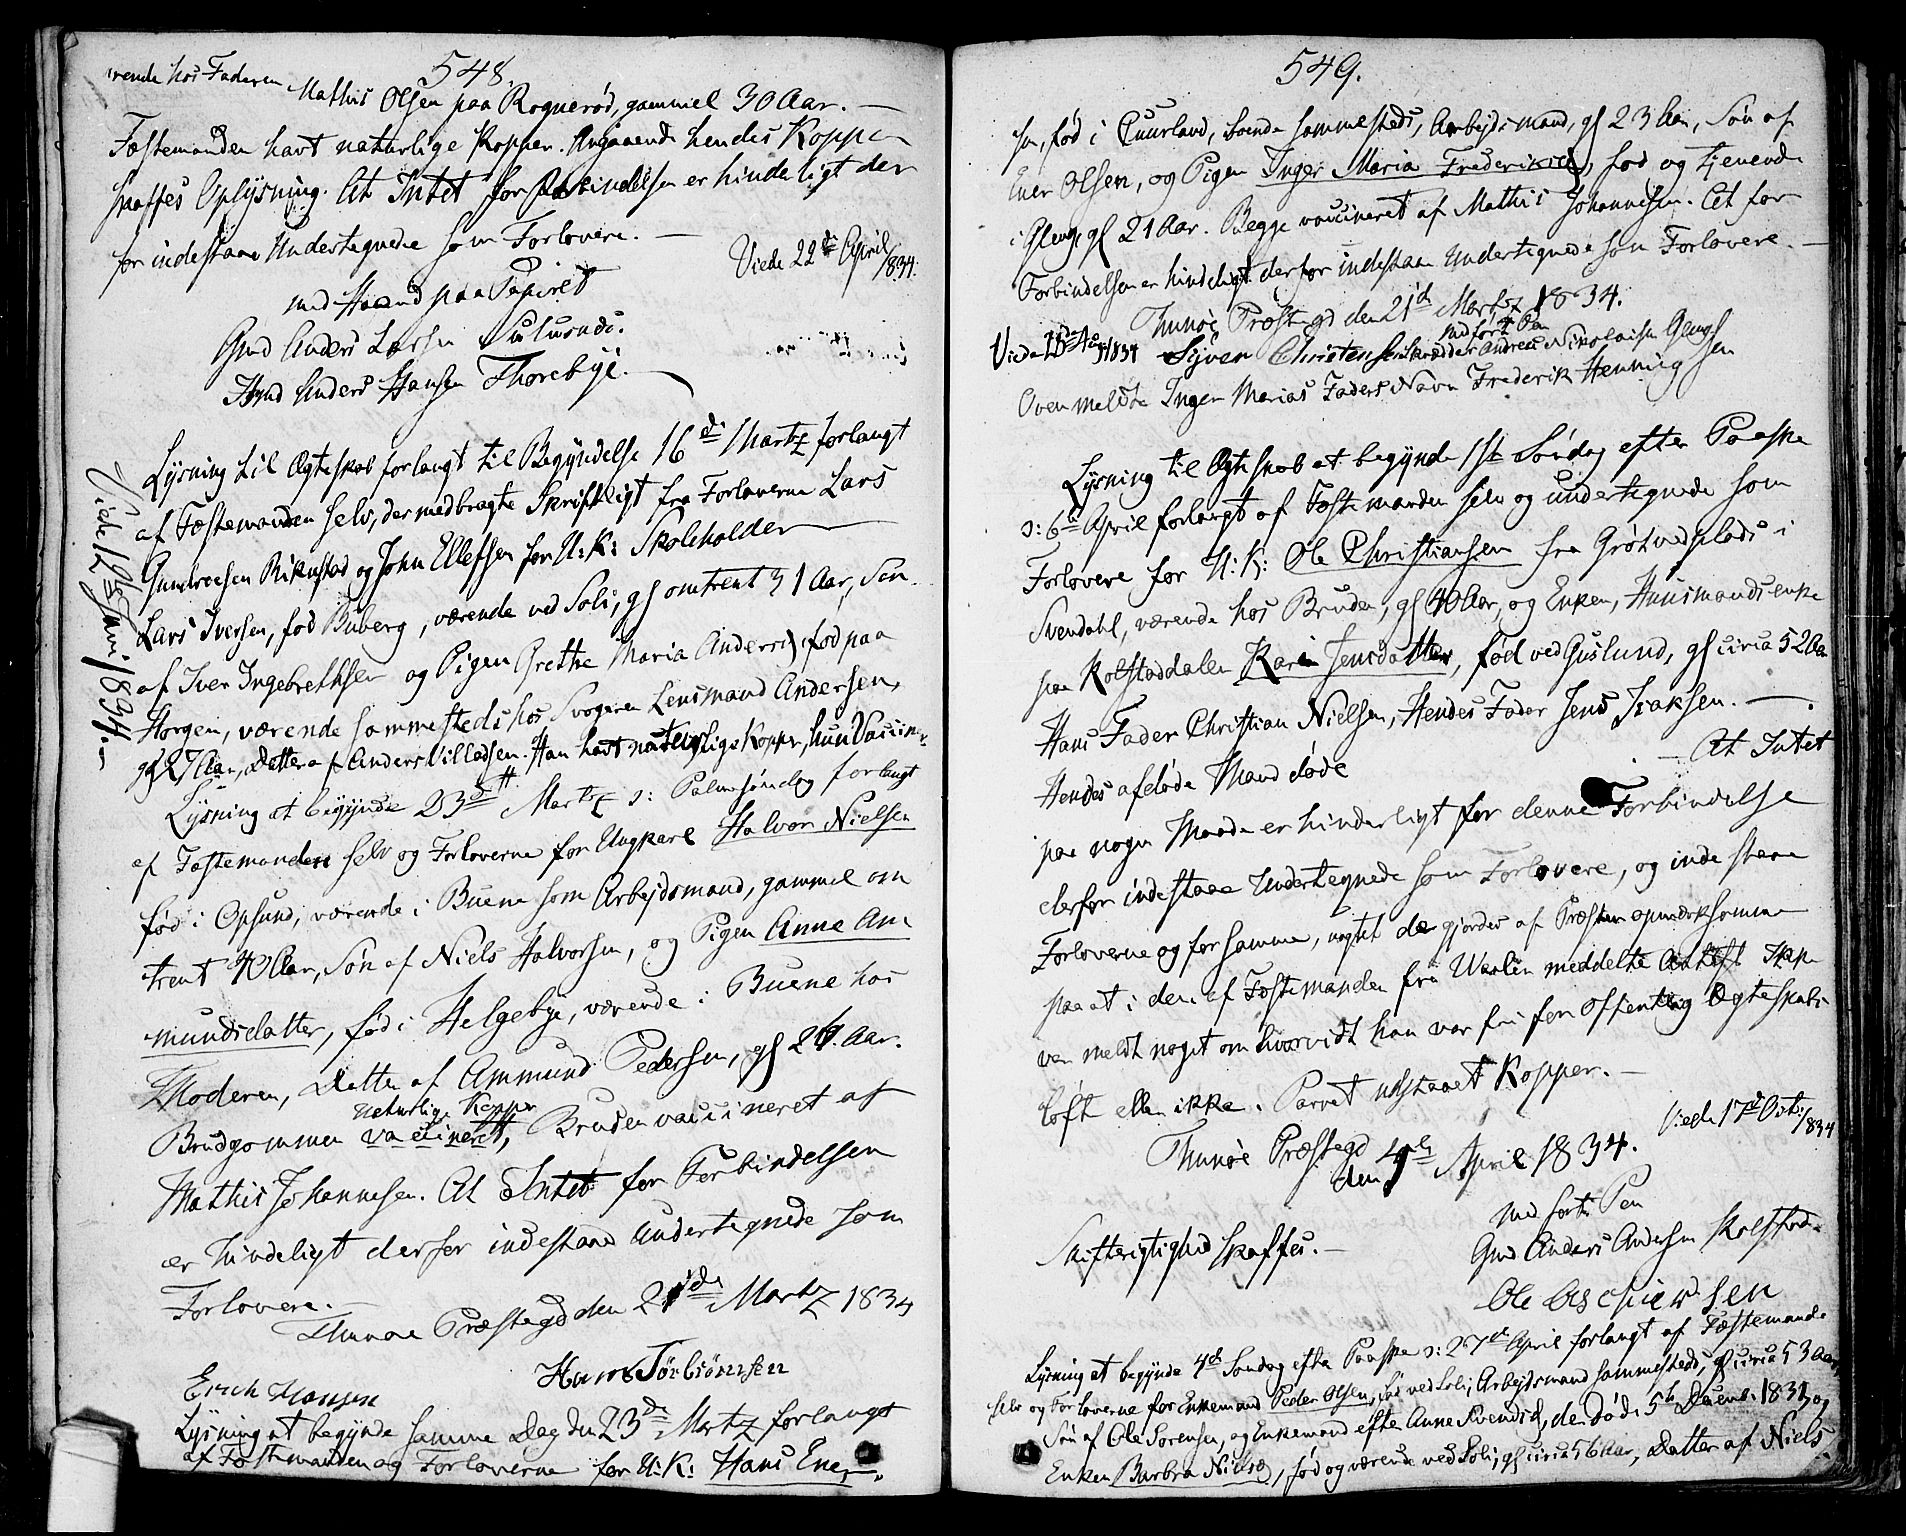 548.
rende hos Faderen Mathis Olsen paa Rognerød, gammel 30 Aar. —
Fæstemanden havt naturlige Kopper. Angaaende hendes Kopper
skaffes Oplysning. At Intet for Forbindelsen er hinderligt der
for indestaae Undertegnede som Forlovere. —
Viede 22de April 1834.
med Haand paa Papiret
Gmd Anders Larsen
Hmd Anders Hansen Thorebye.
Lysning til Ægteskab forlangt til Begyndelse 16de Martz forlangt
af Fæstemanden selv, der medbragte Skriftligt fra Forloverne Lars
Gundersen Rikustad og John Ellefsen for U: K: Skoleholder
Lars Iversen, fød Buberg, værende ved Soli, gl omtrent 31 Aar, Søn
af Iver Ingebrethsen og Pigen Grethe Maria Andersd, fød paa
Horgen, værende sammesteds hos Svogeren Lensmand Andersen,
gl 27 Aar, Datter af Anders Villadsen. Han havt naturlige Kopper, hun Vaccineret
Viede 12te Juni 1834.
Lysning at begynde 23de Martz ɔ: Palmesøndag forlangt
af Fæstemanden selv og Forloverne for Ungkarl Halvor Nielsen
fød i Opsund, værende i Buene som Arbejdsmand, gammel om
trent 40 Aar, Søn af Niels Halvorsen, og Pigen Anne Am
mundsdatter, fød i Helgebye, værende i Buene hos
Moderen, Datter af Ammund Pedersen, gl 26 Aar.
naturlige Kopper
Brudgommen vaccineret, Bruden vaccineret af
Mathis Johannesen. At Intet for Forbindelsen
er hinderligt derfor indestaae Undertegnede som
Forlovere. —
Thunøe Præstegd den 21de Martz 1834
Erich Hansen Hans Torbiørnsen
Lysning at begynde samme Dag den 23de Martz forlangt
af Fæstemanden og Forloverne for U: K: Hans Ener
549.
sen, fød i Quurland, boende sammesteds, Arbejdsmand, gl 23 Aar, Søn af
Ener Olsen, og Pigen Inger Maria Frederiksd, fød og tjenende
i Gleng, gl 21 Aar. Begge vaccineret af Mathis Johannesen. At for
Forbindelsen er hinderligt derfor indestaae Undertegnede som Forlovere. —
Thunøe Præstegd den 21de Martz 1834.
med ført Pen
Syver Christensen Skrædder Andreas Nikolaisen Gleng
Ovenmeldte Inger Marias Faders Navn Frederik Henningsen
Lysning til Ægteskab at begynde 1ste Søndag efter Paaske
ɔ: 6te April forlangt af Fæstemanden selv og undertegnede som
Forlovere for U: K: Ole Christiansen fra Grøtvedplads i
Svendahl, værende hos Bruden, gl 40 Aar, og Enken, Huusmandsenke
paa Kolstaddalen Kari Jensdatter, fød ved Guslund, gl circa 52 Aar
Hans Fader Christian Nielsen, Hendes Fader Jens Isaksen. —
Hendes afdøde Mand døde — At Intet
paa nogen Maade er hinderligt for denne Forbindelse
derfor indestaae Undertegnede som Forlovere, og indestaae
Forloverne og for samme, uagtet der gjordes af Præsten opmærksomme
paa at i den af Fæstemanden fra Waaler meddelte Attest Ikke
var meldt noget om hvorvidt han var fri for Offentlig Ægteskabs
løfte eller ikke. Parret udstaaet Kopper. —
Viede 17de Octr 1834
Thunøe Præstegd
den 4de April 1834.
med ført Pen
Skifterigtighed skaffes. — Gmd Anders Andersen Kolstad
Lysning at begynde 4de Søndag efter Paaske ɔ: 27de April forlangt af Fæstemanden
selv og Forloverne for Enkemand Peder Olsen, fød ved Soli, Arbejdsmand sammesteds, gl circa 53 Aar,
Søn af Ole Sørensen, og Enkemand efter Anne Svendsd, der døde 5te Decembr 1831 og
Enken Barbra Nielsd, fød og værende ved Soli, gl circa 56 Aar, Datter af Niels